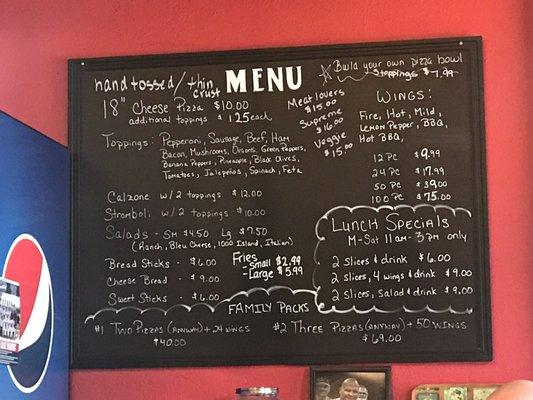 hand tossed/thin crust
MENU
☆ Build your own pizza bowl
5 toppings $7.99
18" Cheese Pizza $10.00
additional toppings $1.25 each
Meat lovers
$15.00
Supreme
$16.00
Veggie
$15.00
Toppings: Pepperoni, Sausage, Beef, Ham
Bacon, Mushrooms, Onions, Green Peppers,
Banana Peppers, Pineapple, Black Olives,
Tomatoes, Jalepeños, Spinach, Feta
WINGS:
Fire, Hot, Mild,
LEMON Pepper, BBQ,
Hot BBQ,
12 pc $9.99
24 pc $17.99
50 pc $39.00
100 pc $75.00
Calzone w/ 2 toppings $12.00
Stromboli w/ 2 toppings $10.00
Salads - SM $4.50 Lg $7.50
(Ranch, Bleu Cheese, 1000 Island, Italian)
Bread Sticks - $6.00
Cheese Bread - $9.00
Sweet Sticks - $6.00
Fries
-Small $2.99
-Large $5.99
LUNCH SPECIALS
M-Sat 11am-3pm only
2 slices & drink $6.00
2 slices, 4 wings & drink $9.00
2 slices, salad & drink $9.00
FAMILY PACKS
#1 Two Pizzas (anyway) + 24 wings
$40.00
#2 Three Pizzas (anyway) + 50 wings
$69.00